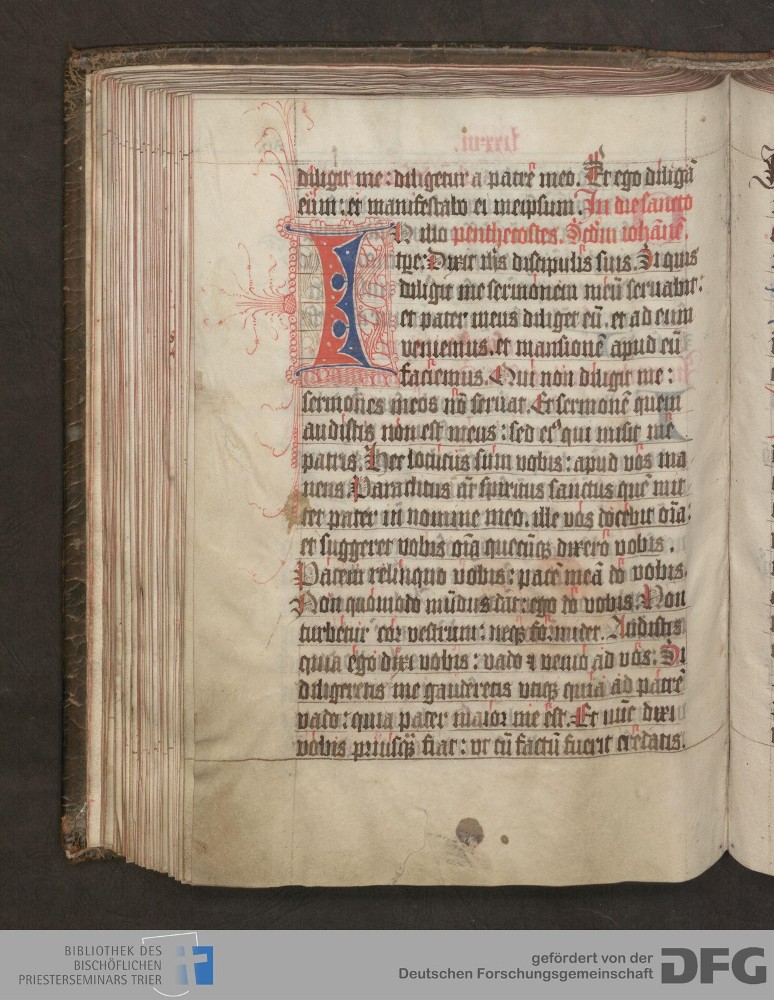 diligit me : diligetur a patre meo. Et ego diligā
eūm : et manifestabo ei meipsum. In die sancto
N illo penthecostes. Scdm iohānē.
tpe : Dixit ihs discipulis suis. Si quis
diligit me sermonem meū seruabit :
et pater meus diliget eū. et ad eum
veniemus. et mansionē apud eū
faciemus. Qui non diligit me :
sermones meos nō seruat. Et sermonē quem
audistis non est meus : sed eiꝰ qui misit me
patris. Hec locutus sum vobis : apud vos ma
nens. Paraclitus aūt spiritus sanctus quē mit
tet pater in nomine meo. ille vos docebit oīa :
et suggeret vobis oīa quecūqꝫ dixero vobis.
Pacem relinquo vobis : pacē meā do vobis.
Non quomodo mūdus dat : ego do vobis. Non
turbetur cor vestrum : neqꝫ formidet. Audistis
quia ego dixi vobis : vado ⁊ venio ad vos. Si
diligeretis me gauderetis vtiqꝫ quia ad patrē
vado : quia pater maior me est. Et nūc dixi
vobis priusqꝫ fiat : vt cū factū fuerit credatis.
BIBLIOTHEK DES
BISCHÖFLICHEN
PRIESTERSEMINARS TRIER
gefördert von der
Deutschen Forschungsgemeinschaft
DFG